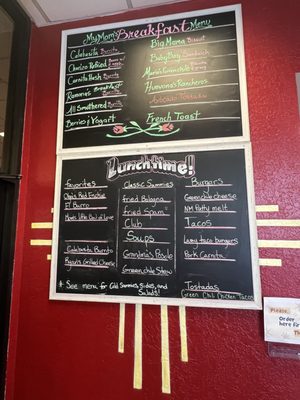 My Mom's Breakfast Menu
Calabasita Burrito
Chorizo Refried
Carnilla Hash
Ramona's Breakfast Burrito
All Smothered Burrito
Berries & Yogurt
Big Mama Biscuit
Baby Boy Sandwich
Maria's Granachile
Huevona's Rancheros
Avocado Tostada
French Toast
Lunch Time!
Favorites
Red Enchiladas
El Burro
Mom's
Calabasita Burrito
Grilled Cheese
Classic Sammies
Fried Bologna
Fried Spam
Club
Soups
Grandma's Posole
Green chile Stew
Burgers
Green chile cheese
NM Patty melt
Tacos
Lazy taco burgers
Pork Carnita
Tostadas
Green Chili Chicken Tacos
* See menu for Cold Sammies, Sides, and
Salads!
Please
Order